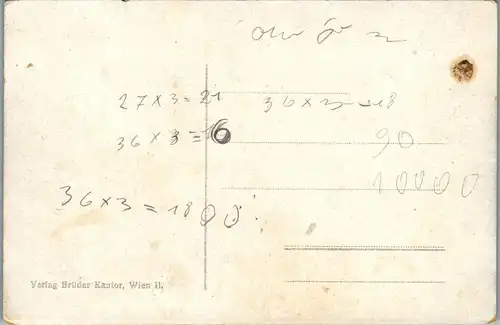 27 x 3 = 21 36 x 3 = 18
36 x 3 = 16 90
10000
36 x 3 = 1800
Verlag Brüder Kantor, Wien II.